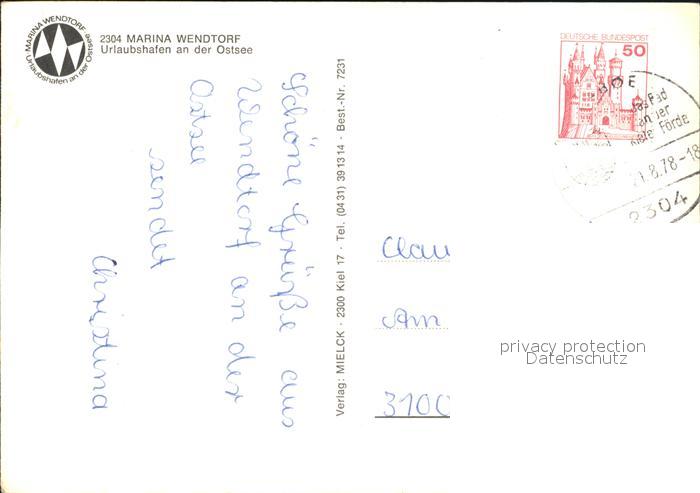 MARINA WENDTORF
Urlaubshafen an der Ostsee
2304 MARINA WENDTORF
Urlaubshafen an der Ostsee
Schöne Grüße aus
Wendtorf an der
Ostsee
sendet
Christina
Verlag: MIELCK · 2300 Kiel 17 · Tel. (0431) 391314 · Best.-Nr. 7231
DEUTSCHE BUNDESPOST
50
BOE
das Bad
an der
Kieler Förde
21.8.78-18
2304
Clau
Am
3100
privacy protection
Datenschutz